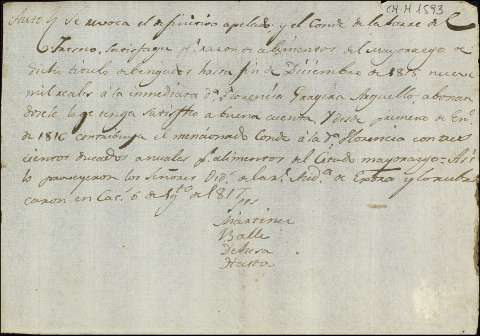 CH-M 1593
se revoca el definitivo apelado y el Conde de la torre del
Fresno, satisfaga pr. razon de alimentos del Mayorazgo de
dicho titulo debengados hasta fin de Diciembre de 1815 nueve
mil reales á la inmediata Da. Florencia Arguello, abonan
dosele lo qe. tenga satisfho. a buena cuenta y desde primero de En.o
de 1816 contribuya el mencionado Conde á la Da. Florencia con tres
cientos ducados anuales pr. alimentos del Citado mayorazgo. Asi
lo proveyeron los señores de la Rl. Auda. de Extra. y lo rubri
caron en Cac. 6 de de 1817
Martinez
Balle
Dehesa